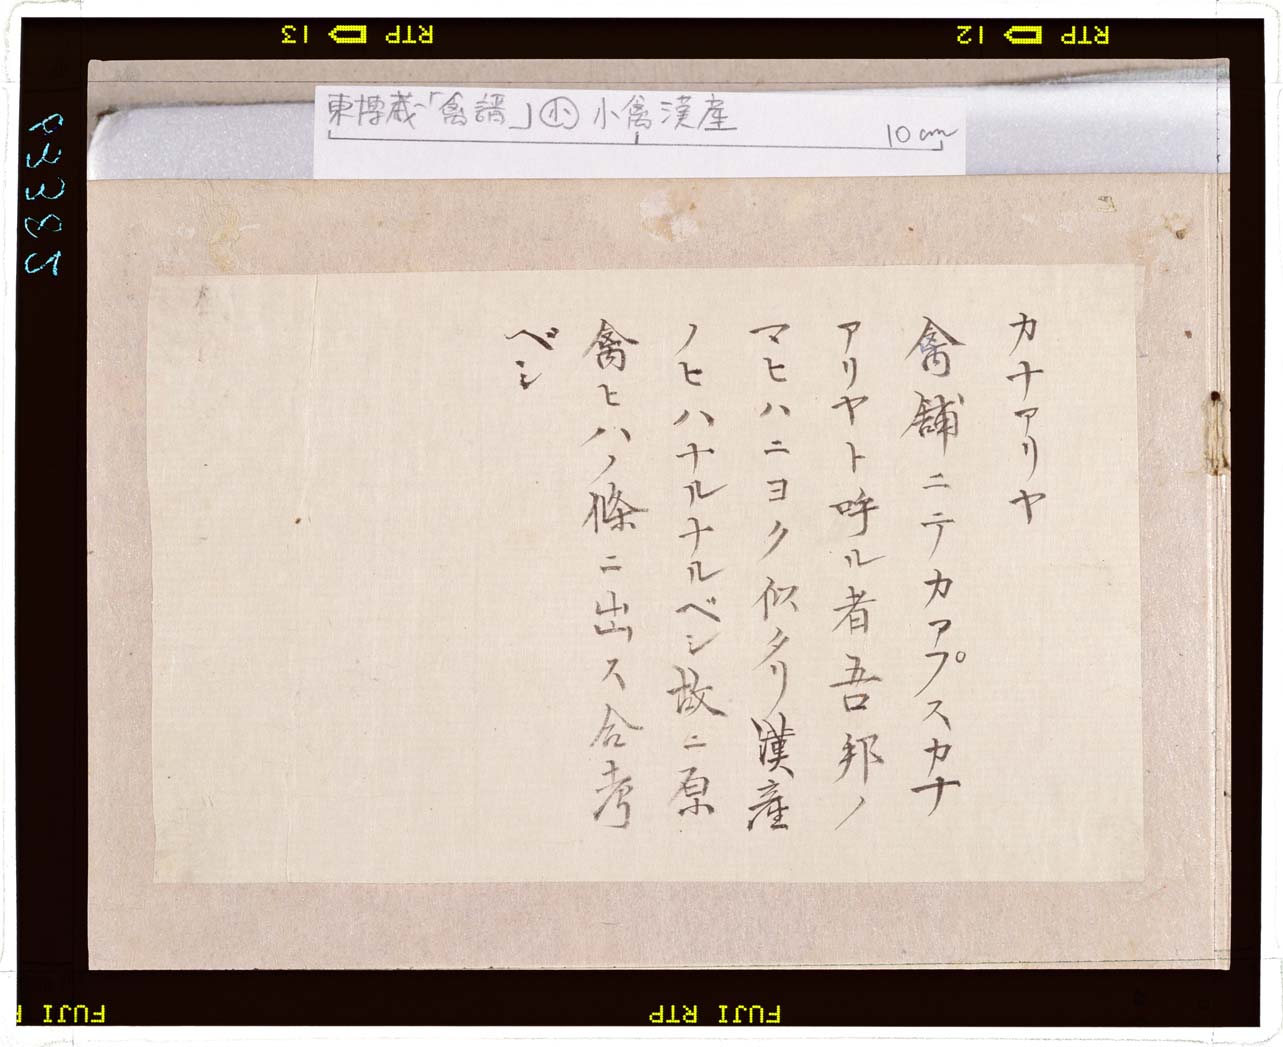 RTP 12
RTP 13
東博蔵「禽譜」㊥小禽漢産
10cm
カナアリヤ
禽舗ニテカアプスカナ
アリヤト呼ル者吾邦ノ
マヒハニヨク似タリ漢産
ノヒハナルナルベシ故ニ原
禽ヒハノ條ニ出ス合考
ベシ
FUJI RTP
FUJI